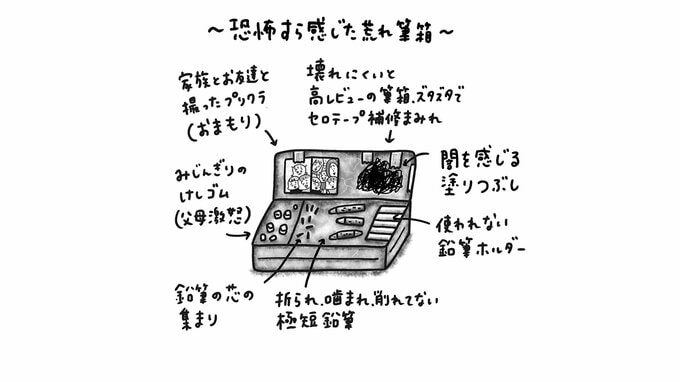 〜恐怖すら感じた荒れ筆箱〜
家族とお友達と
撮ったプリクラ
(おまもり)
壊れにくいと
高レビューの筆箱、ズタズタで
セロテープ補修まみれ
みじんぎりの
けしゴム
(父母激怒)
闇を感じる
塗りつぶし
使われない
鉛筆ホルダー
鉛筆の芯の
集まり
折られ、噛まれ、削れてない
極短鉛筆